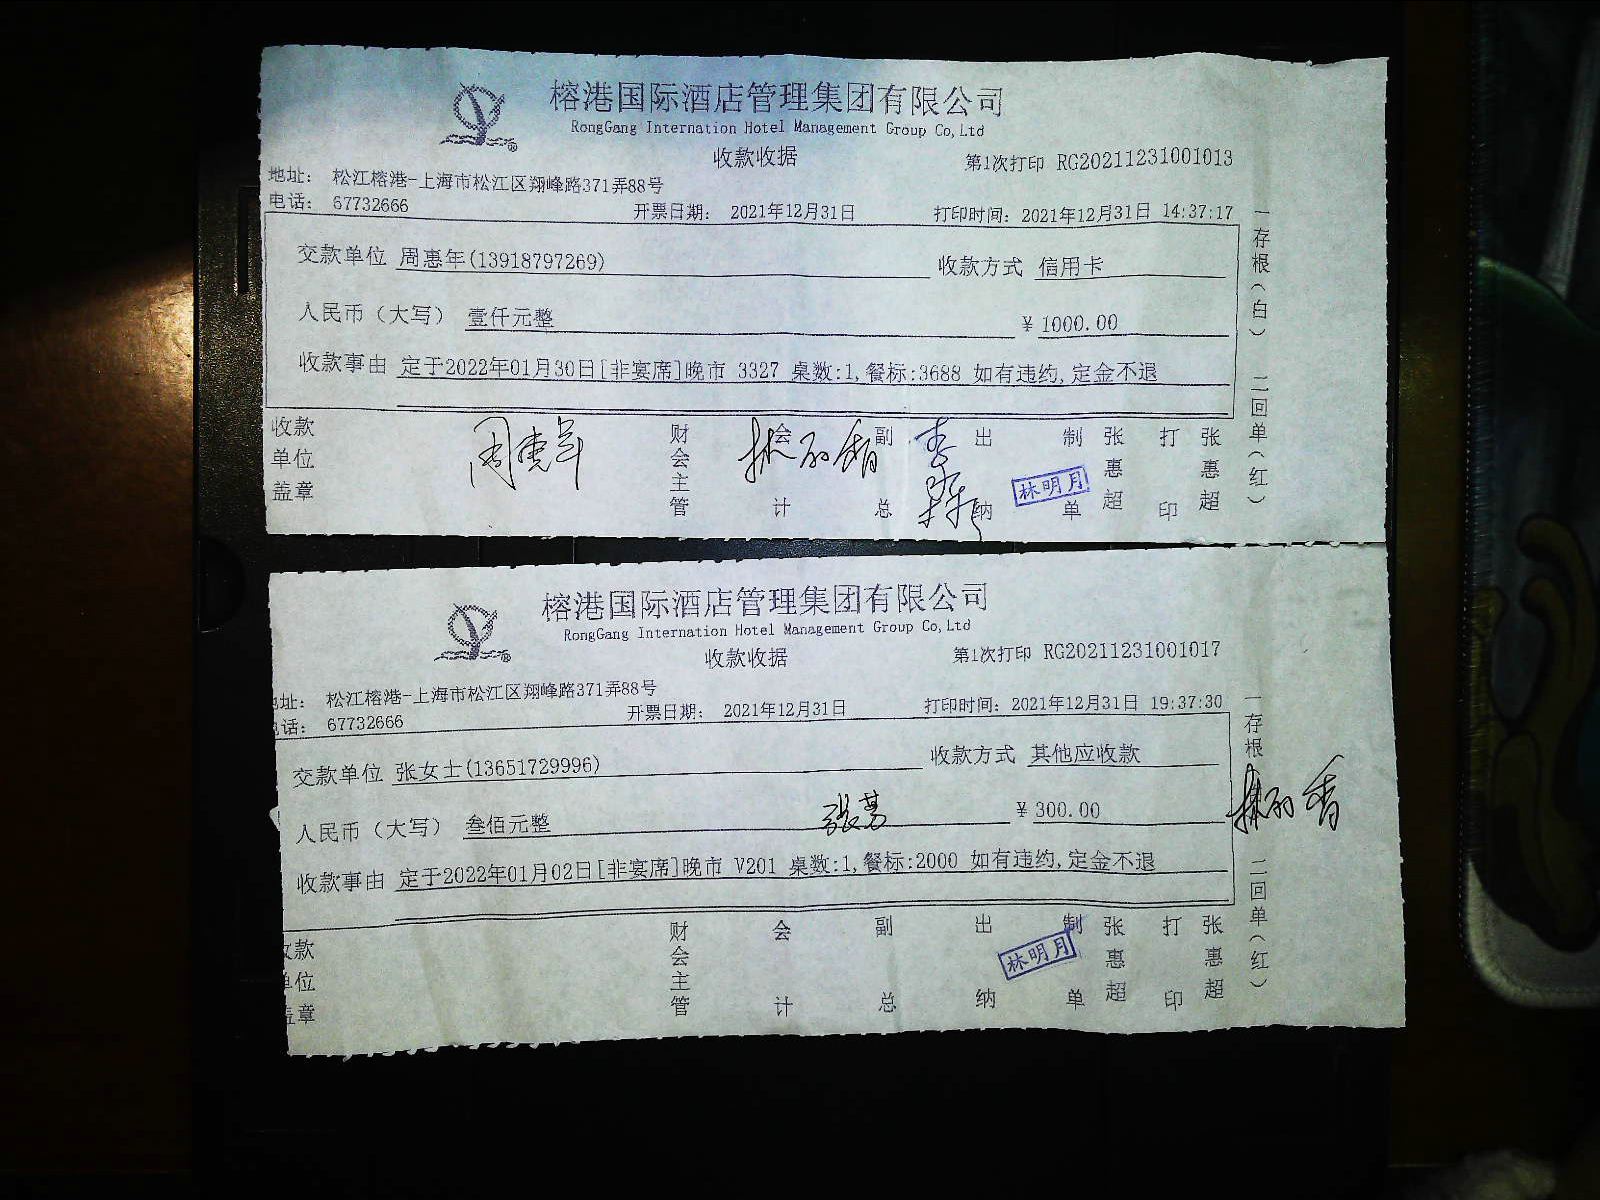 榕港国际酒店管理集团有限公司
RongGang Internation Hotel Management Group Co,Ltd
收款收据
第1次打印 RG20211231001013
地址: 松江榕港-上海市松江区翔峰路371弄88号
电话: 67732666
开票日期: 2021年12月31日
打印时间: 2021年12月31日 14:37:17
交款单位 周惠年(13918797269)
收款方式 信用卡
人民币(大写) 壹仟元整
¥ 1000.00
收款事由 定于2022年01月30日[非宴席]晚市 3327 桌数:1,餐标:3688 如有违约,定金不退
收款单位盖章
周惠年
财会主管
会计
副总
出纳
林明月
制单
张惠超
打印
张惠超
一存根(白) 二回单(红)
榕港国际酒店管理集团有限公司
RongGang Internation Hotel Management Group Co,Ltd
收款收据
第1次打印 RG20211231001017
地址: 松江榕港-上海市松江区翔峰路371弄88号
电话: 67732666
开票日期: 2021年12月31日
打印时间: 2021年12月31日 19:37:30
交款单位 张女士(13651729996)
收款方式 其他应收款
人民币(大写) 叁佰元整
¥ 300.00
收款事由 定于2022年01月02日[非宴席]晚市 V201 桌数:1,餐标:2000 如有违约,定金不退
收款单位盖章
财会主管
会计
副总
出纳
林明月
制单
张惠超
打印
张惠超
一存根
二回单(红)